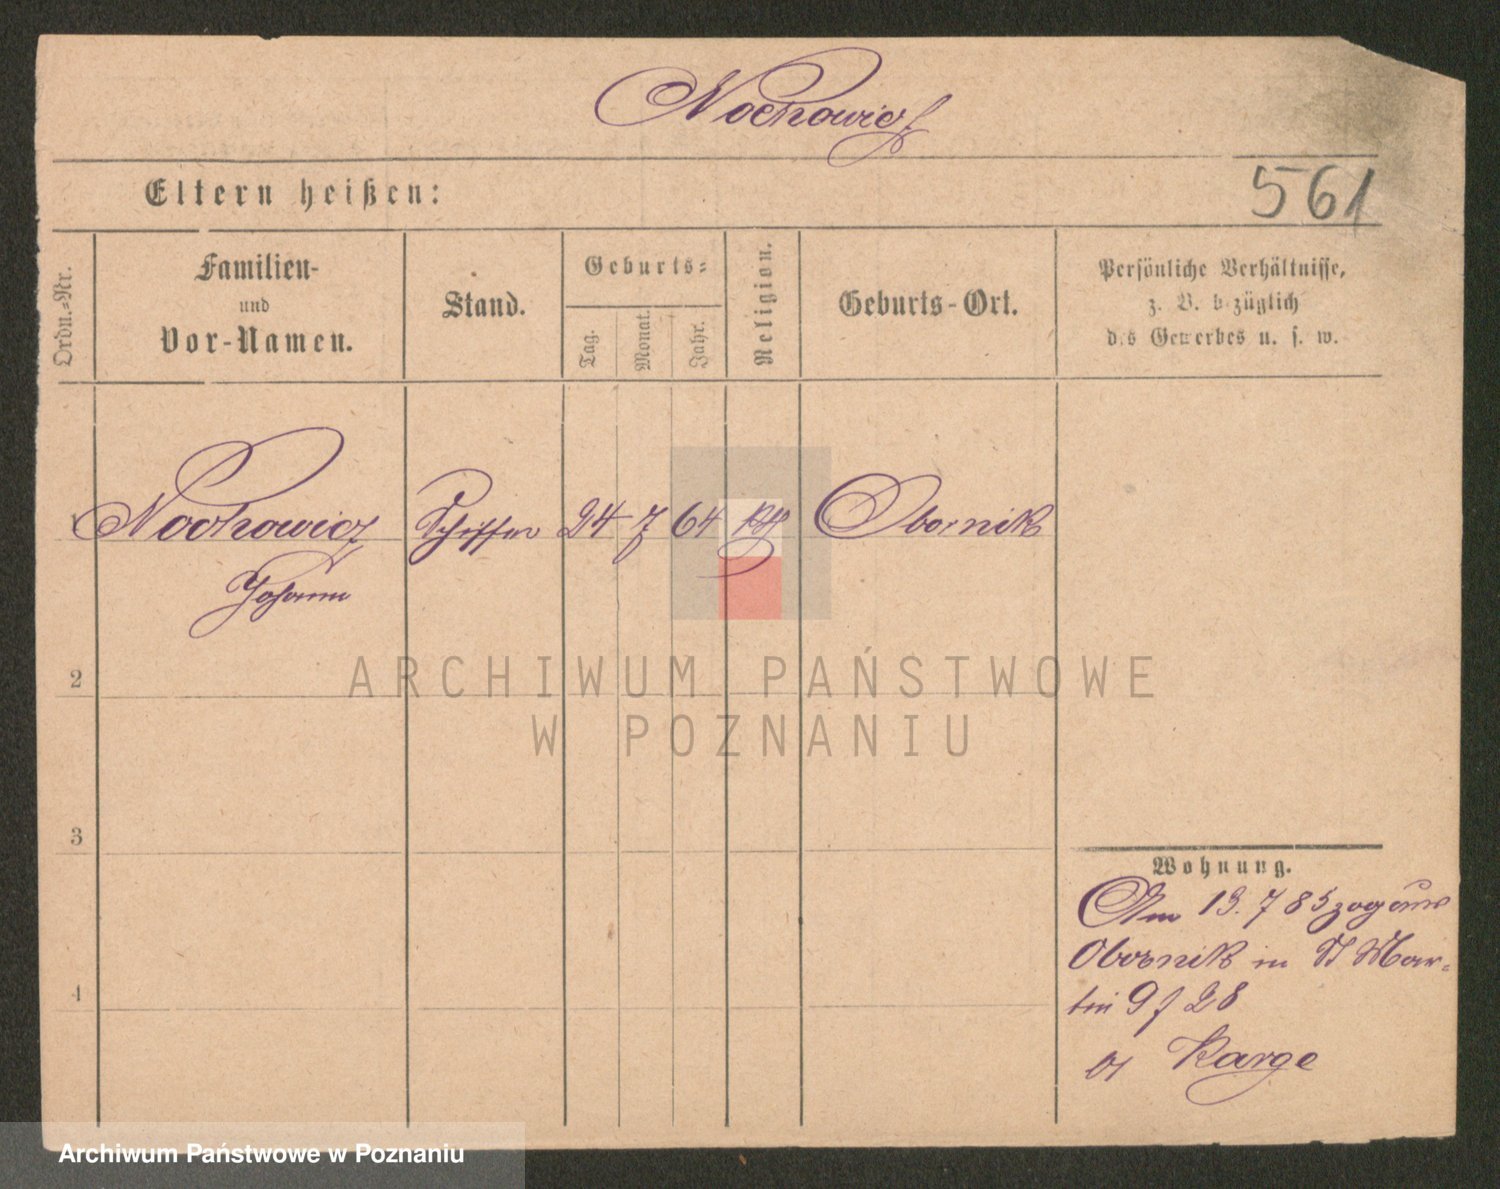 Nochowicz
Eltern heißen:
561
Ordn.=Nr.
Familien-
und
Vor-Namen.
Stand.
Geburts=
Tag.
Monat.
Jahr.
Religion.
Geburts-Ort.
Persönliche Verhältnisse,
z. B. bezüglich
des Gewerbes u. s. w.
1 Nochowicz Schiffer 24 7 64 kth Obornik
Johann
2
3
4
ARCHIWUM PAŃSTWOWE
W POZNANIU
Wohnung.
Am 13. 7 85 zog aus
Obornik in St Mar=
tin 9 / 28
bei Karge
Archiwum Państwowe w Poznaniu